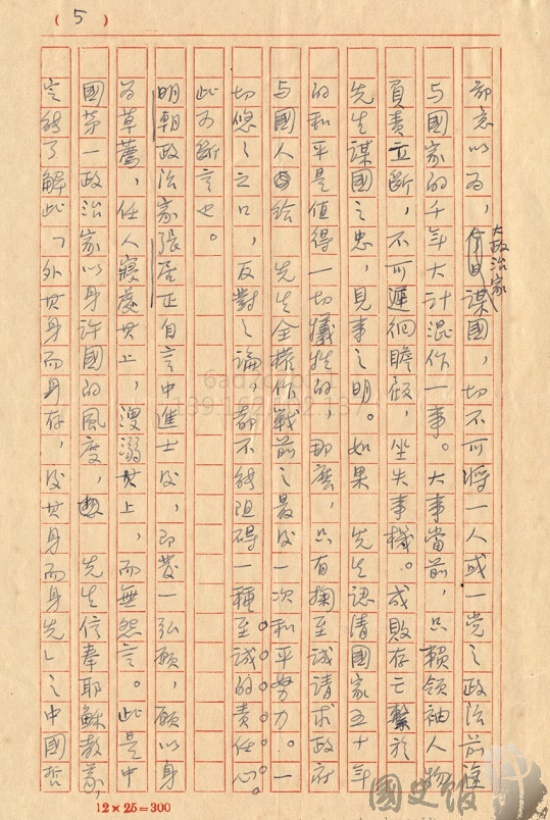 (5)
鄙意以为，大政治家謀國，切不可将一人或一党之政治前途
与國家的千年大計混作一事。大事當前，只賴領袖人物
負責立断，不可遲徊瞻顧，坐失事機。成敗存亡繫於
先生謀國之忠，見事之明。如果 先生認清國家五十年
的和平是值得一切犧牲的，那麽，只有掬至誠請求政府
与國人給 先生全權作戰前之最後一次和平努力。一
切悠々之口，反對之論，都不能阻碍一種至誠的責任心。
此可断言也。
明朝政治家張居正自言中進士後，即發一弘願，願以身
为草薦，任人寢處其上，溲溺其上，而無怨言。此是中
國第一政治家以身許國的風度，想 先生信奉耶穌教義，
定能了解此「外其身而身存，後其身而身先」之中國哲
12×25=300
國史館